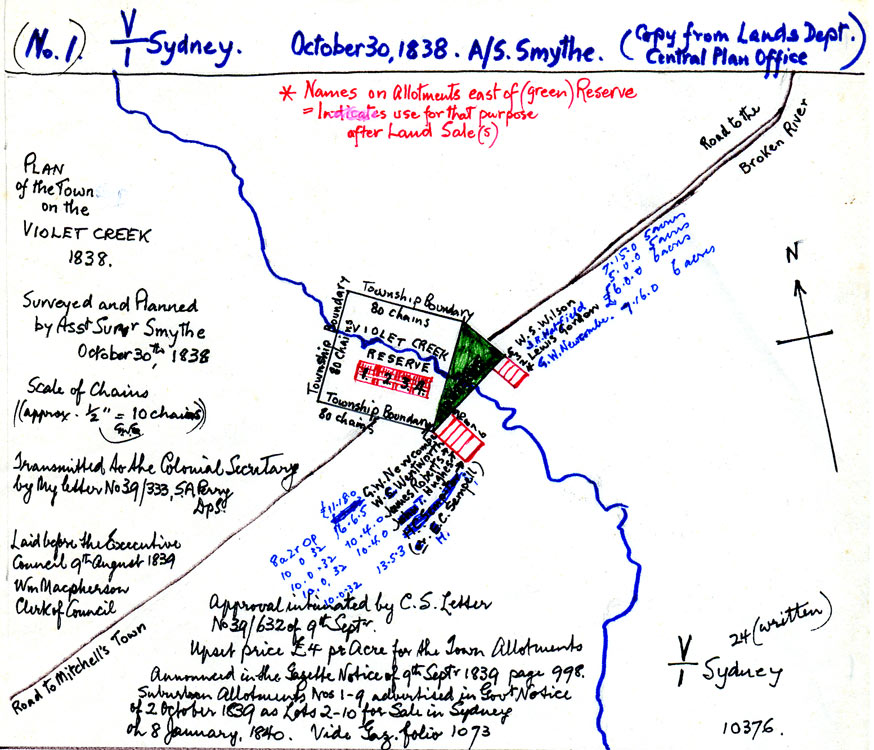 (No. 1.) V/1 Sydney. October 30, 1838. A/S. Smythe. (Copy from Lands Dept.
Central Plan Office)
* Names on Allotments east of (green) Reserve
= Indicates use for that purpose
after Land Sale(s)
Road to the
Broken River
PLAN
of the Town
on the
VIOLET CREEK
1838.
Surveyed and Planned
by Asst Survr Smythe
October 30th, 1838
Scale of Chains
(approx. ½" = 10 chains)
N
7.15.0 5 acres
5.0.0 5 acres
£6.0.0 6 acres
7.16.0 6 acres
W.S. Wilson
Lewis Gordon
G.W. Newcombe.
Township Boundary
80 chains
Township Boundary
80 chains
VIOLET CREEK
RESERVE
1. 2. 3. 4.
Township Boundary
80 chains
G.W. Newcombe
W.C. Wentworth
James Roberts
T. Hughes
C. Sempill)
H.
£11.18.0
16.6.5
10.4.0
10.4.0
13.5.3
8a 2r 0p
10.0.32
10.0.32
10.0.32
10.0.32
Transmitted to the Colonial Secretary
by My letter No 39/333, S.A. Perry
DpS.
Laid before the Executive
Council 9th August 1839
Wm Macpherson
Clerk of Council
Road to Mitchell's Town
Approval intimated by C.S. Letter
No 39/632 of 9th Septr.
Upset price £4 pr Acre for the Town Allotments
Announced in the Gazette Notice of 9th Septr 1839 page 998.
Suburban Allotments Nos 1-9 advertised in Govt Notice
of 2 October 1839 as Lots 2-10 for Sale in Sydney
on 8 January, 1840. Vide Gaz. folio 1073
24 (written)
V/1 Sydney
10376.